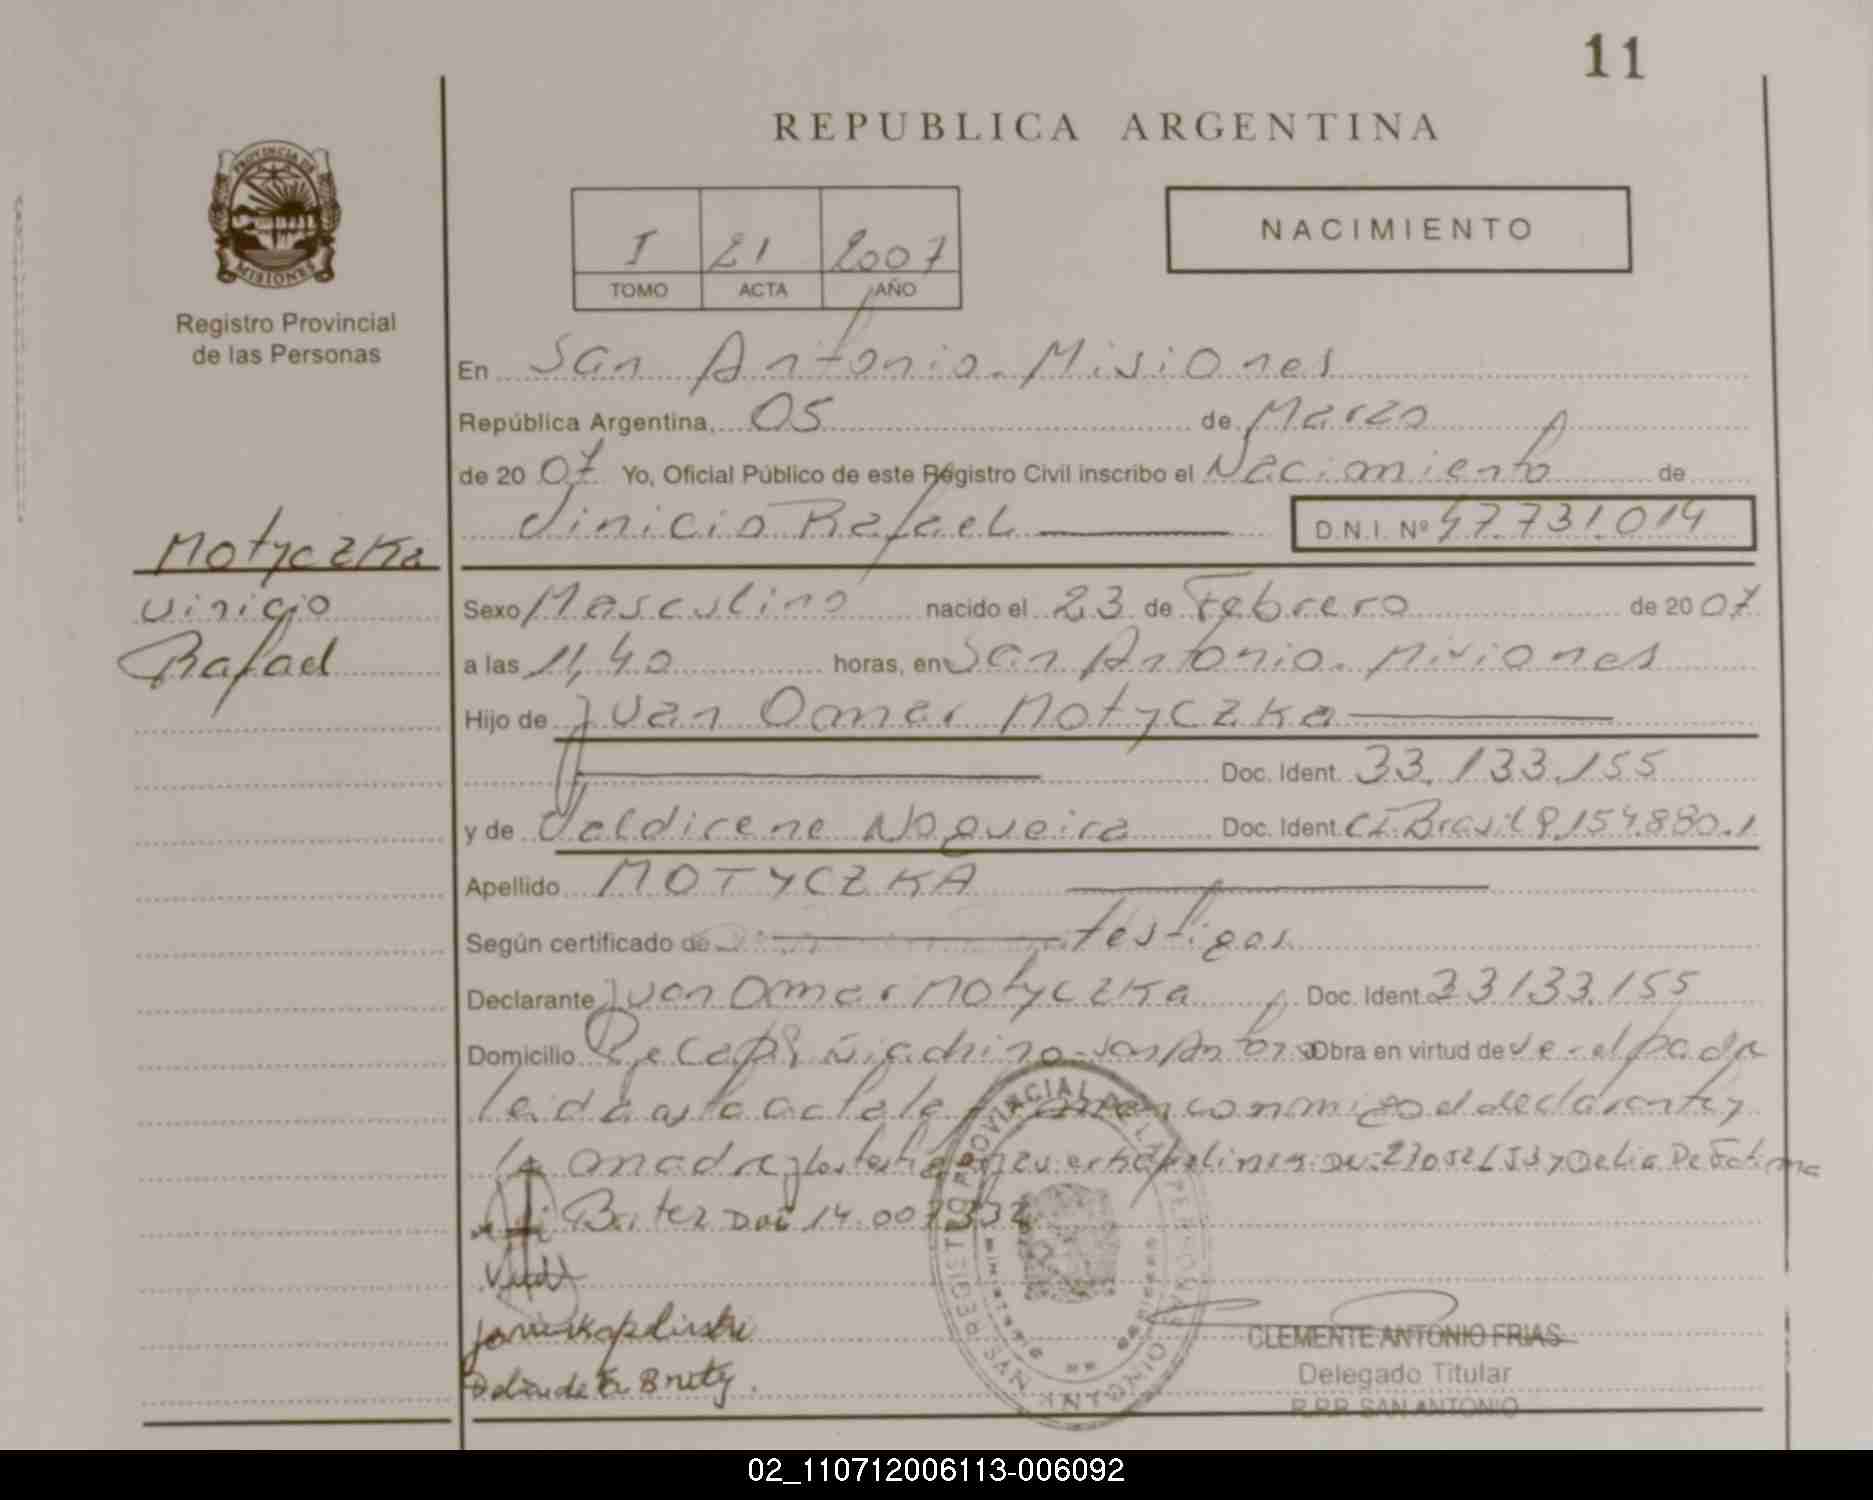 11
REPUBLICA ARGENTINA
PROVINCIA DE
MISIONES
Registro Provincial
de las Personas
I 21 2007
TOMO ACTA AÑO
NACIMIENTO
En San Antonio. Misiones
República Argentina, 05 de Marzo
de 20 07 Yo, Oficial Público de este Registro Civil inscribo el Nacimiento de
Vinicio Rafael D.N.I. Nº 47.731.014
Motyczka
Vinicio
Rafael
Sexo Masculino nacido el 23 de Febrero de 20 07
a las 11,40 horas, en San Antonio. Misiones
Hijo de Juan Omar Motyczka
Doc. Ident. 33.133.155
y de Valdirene Nogueira Doc. Ident. CI. Brasil 9.154.880.1
Apellido MOTYCZKA
Según certificado de testigos
Declarante Juan Omar Motyczka Doc. Ident. 33133.155
Domicilio San Antonio Obra en virtud de ser el padre
leida el acta la firman conmigo el declarante y
la madre y los testigos y Delia De Fatima
Britez DNI 14.007.332
REGISTRO PROVINCIAL DE LAS PERSONAS
SAN ANTONIO
CLEMENTE ANTONIO FRIAS
Delegado Titular
R.P.P. SAN ANTONIO
02_110712006113-006092